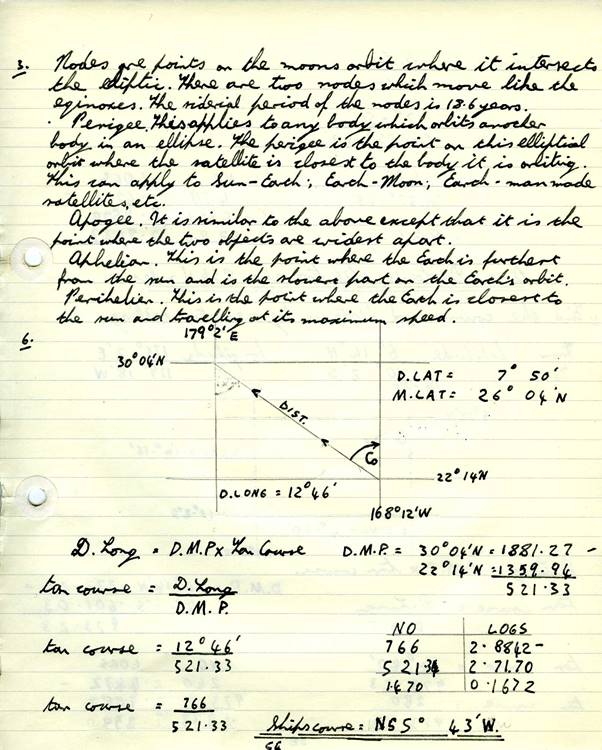 3. Nodes are points on the moons orbit where it intersects
the ecliptic. There are two nodes which move like the
eqinoxes. The siderial period of the nodes is 18.6 years.
Perigee. This applies to any body which orbits another
body in an ellipse. The perigee is the point on this elliptial
orbit where the satellite is closest to the body it is orbiting.
This can apply to Sun-Earth; Earth-Moon; Earth-man made
satellites, etc.
Apogee. It is similar to the above except that it is the
point where the two objects are widest apart.
Aphelian. This is the point where the Earth is furthest
from the sun and is the slowest part on the Earth's orbit.
Perihelian. This is the point where the Earth is closest to
the sun and travelling at its maximum speed.
6. 179°2'E
30°04'N
D.LAT = 7° 50'
M.LAT = 26° 04'N
DIST.
Co
22°14'N
D.LONG = 12°46'
168°12'W
D.Long = D.M.P x Tan Course D.M.P. = 30°04'N = 1881.27 -
22°14'N = 1359.94
521.33
tan course = D.Long
D.M.P.
tan course = 12°46'
521.33
NO LOGS
766 2.8842 -
521.34 2.7170
1.470 0.1672
tan course = 766
521.33
Ships course = N55° 43'W.
56